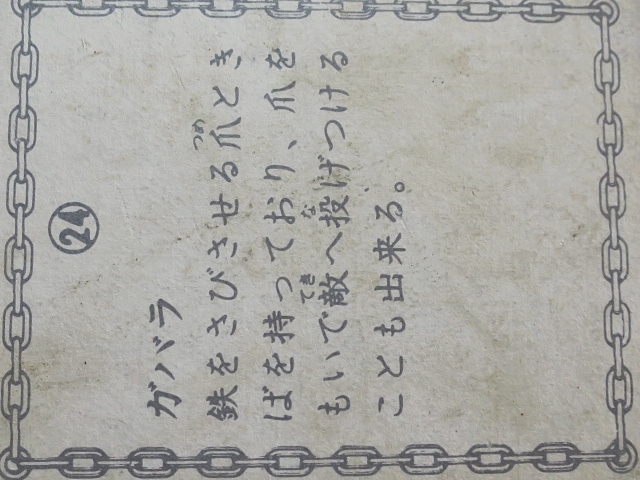 ㉔
ガバラ
鉄をさびさせる爪とき
ばを持っており、爪を
もいで敵へ投げつける
ことも出来る。